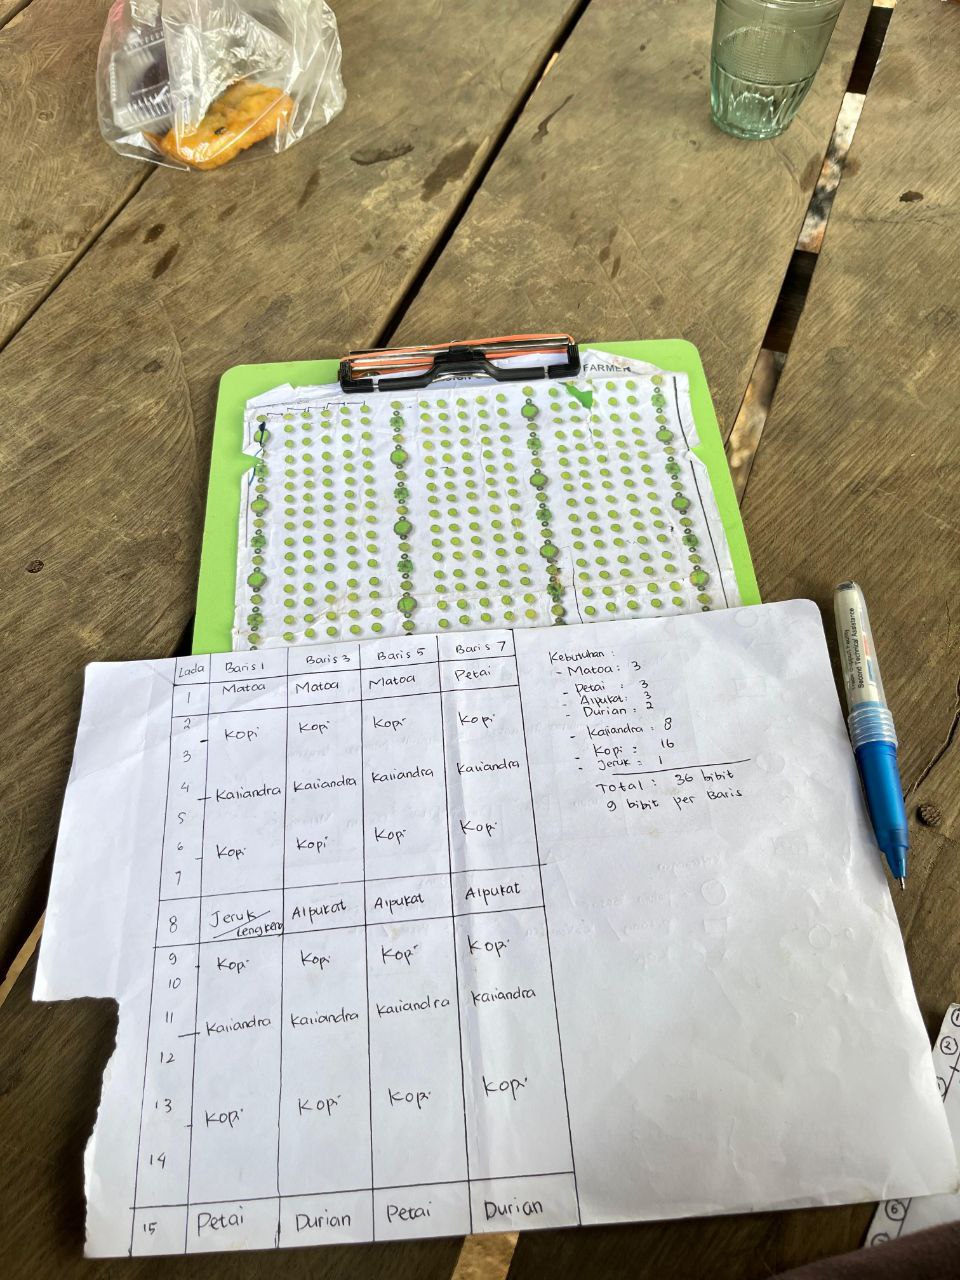 FARMER
Lada Baris 1 Baris 3 Baris 5 Baris 7
1 Matoa Matoa Matoa Petai
2 Kopi Kopi Kopi Kopi
3
4 Kaliandra Kaliandra Kaliandra Kaliandra
5
6 Kopi Kopi Kopi Kopi
7
8 Jeruk/Lengkeng Alpukat Alpukat Alpukat
9 Kopi Kopi Kopi Kopi
10
11 Kaliandra Kaliandra Kaliandra Kaliandra
12
13 Kopi Kopi Kopi Kopi
14
15 Petai Durian Petai Durian
Kebutuhan :
- Matoa : 3
- Petai : 3
- Alpukat : 3
- Durian : 2
- Kaliandra : 8
- Kopi : 16
- Jeruk : 1
Total : 36 bibit
9 bibit per Baris
Second Technical Assistance
1
2
6